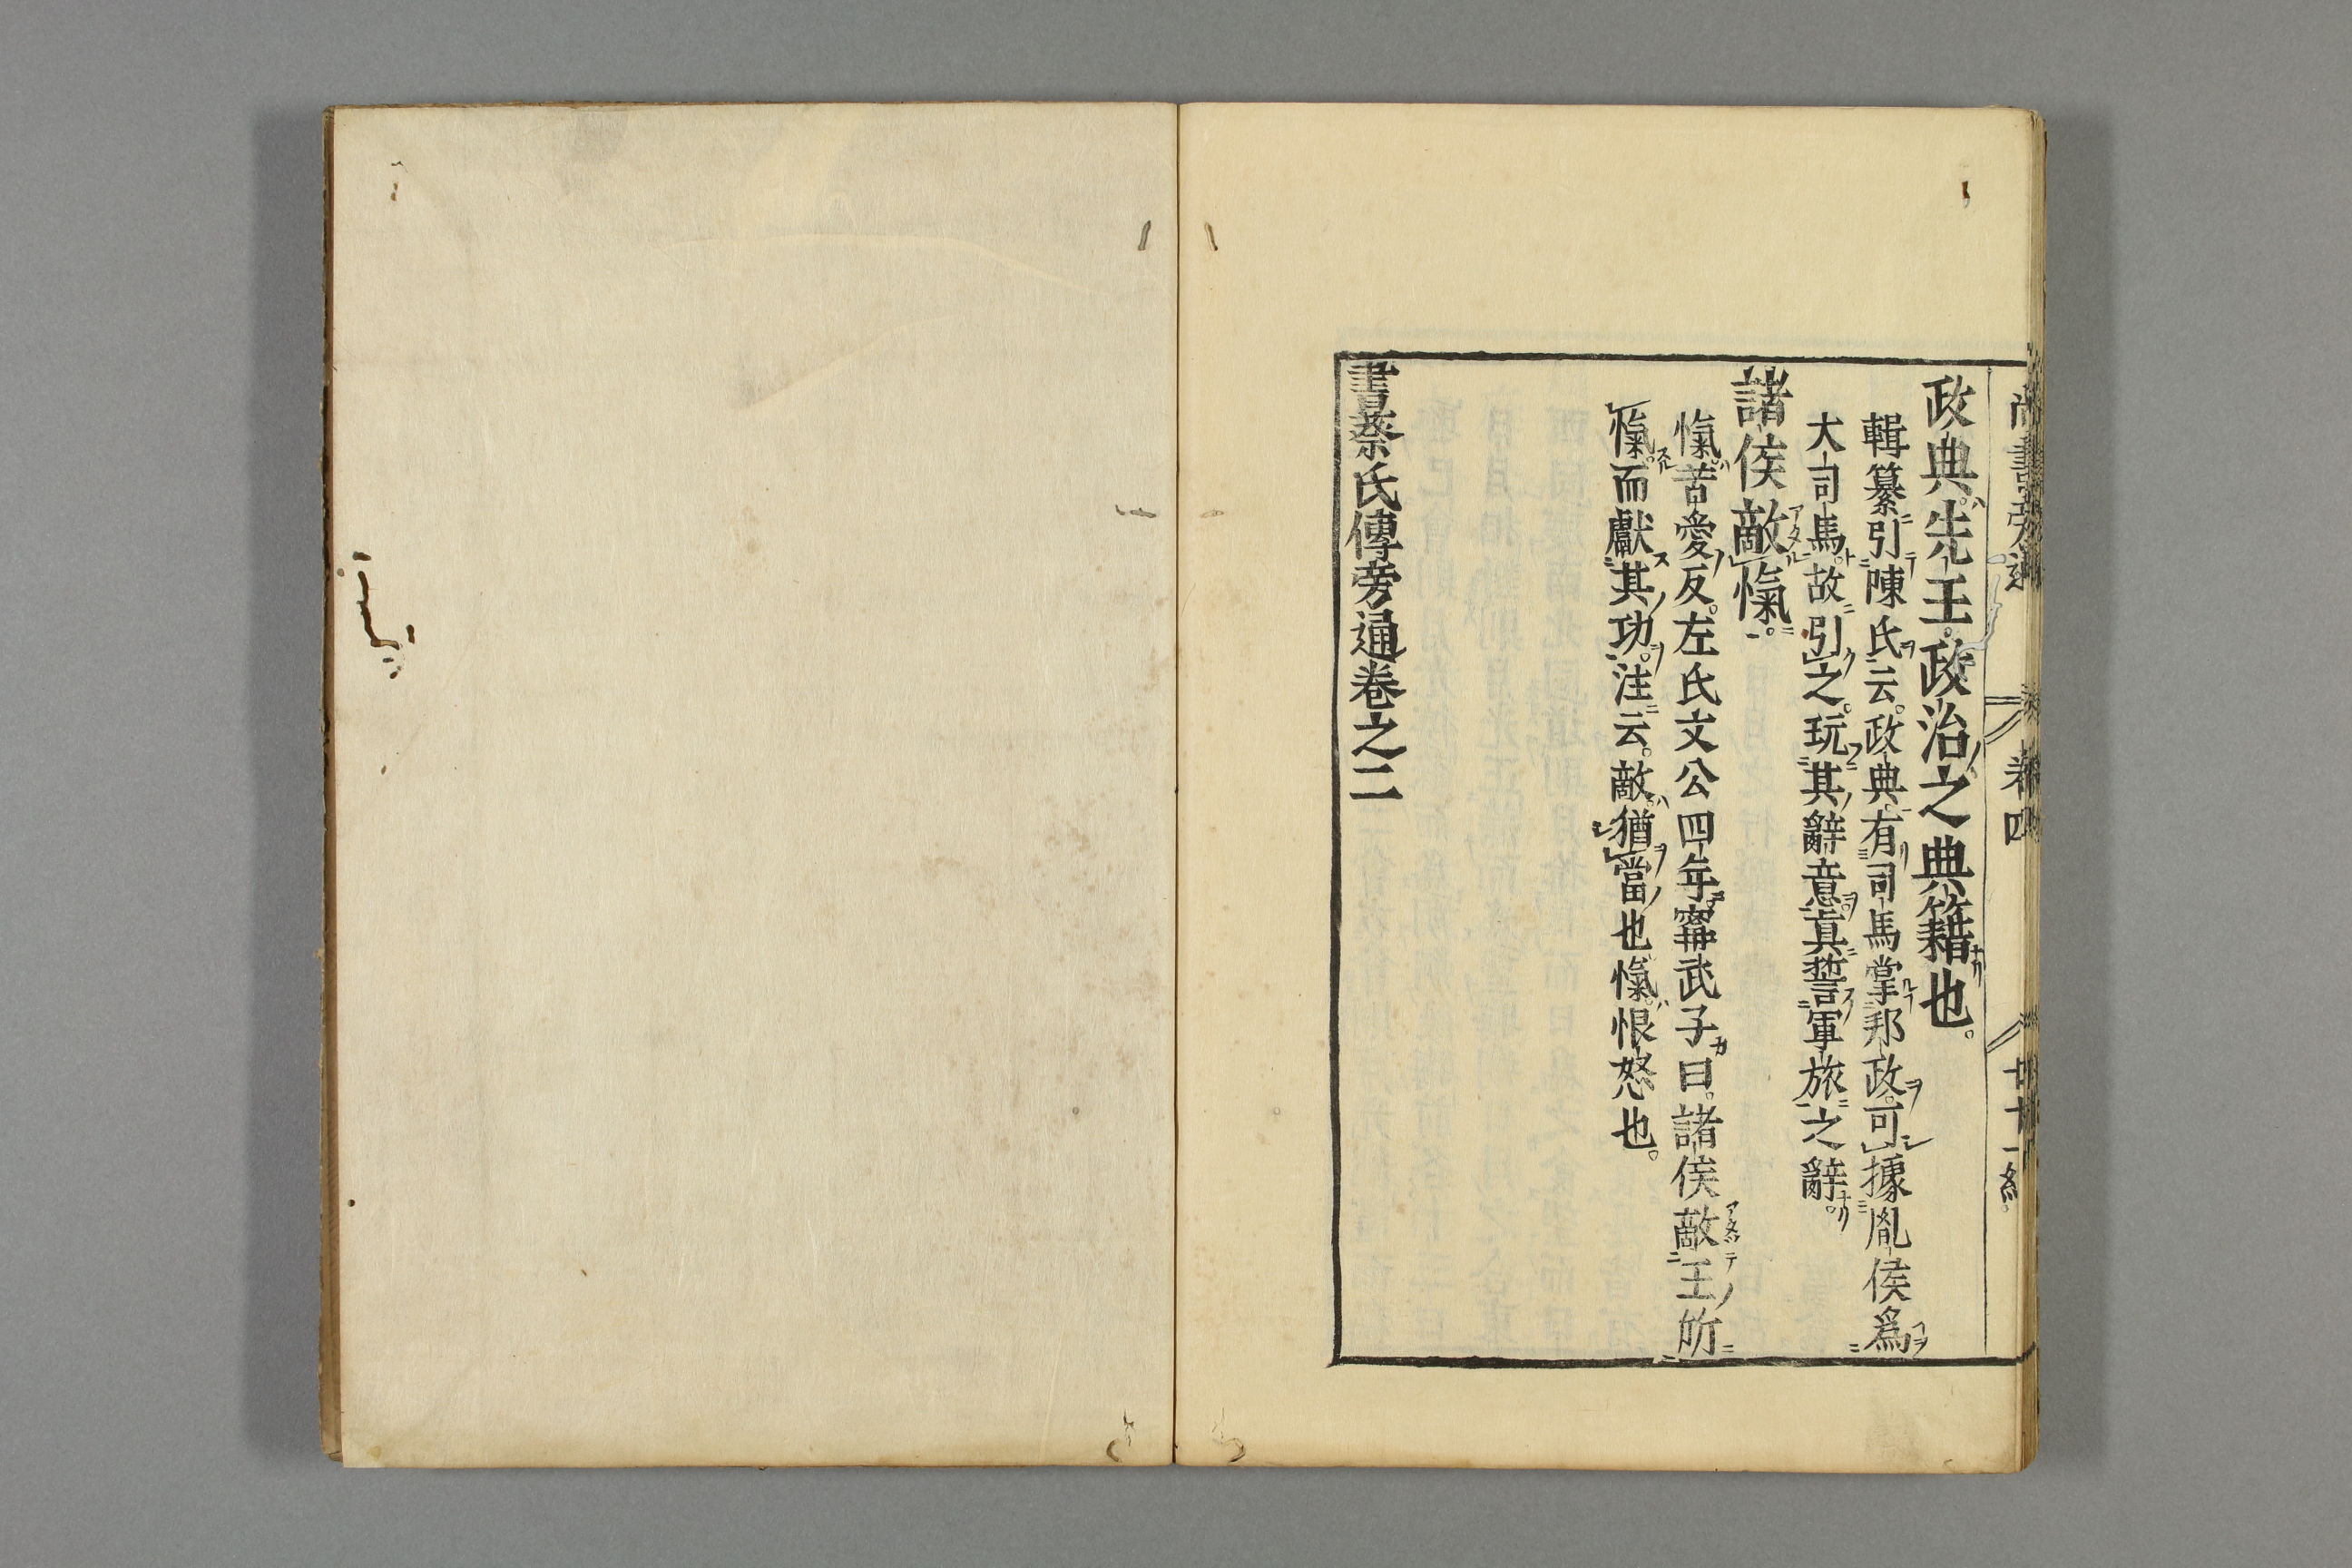 政典先王政治之典籍也。
輯纂引陳氏云。政典有司馬掌邦政。可據胤侯爲
大司馬。故引之。玩其辭意眞誓軍旅之辭。
諸侯敵愾。
愾苦愛反。左氏文公四年甯武子曰。諸侯敵王所
愾而獻其功。注云。敵猶當也愾恨怒也。
書蔡氏傳旁通卷之二